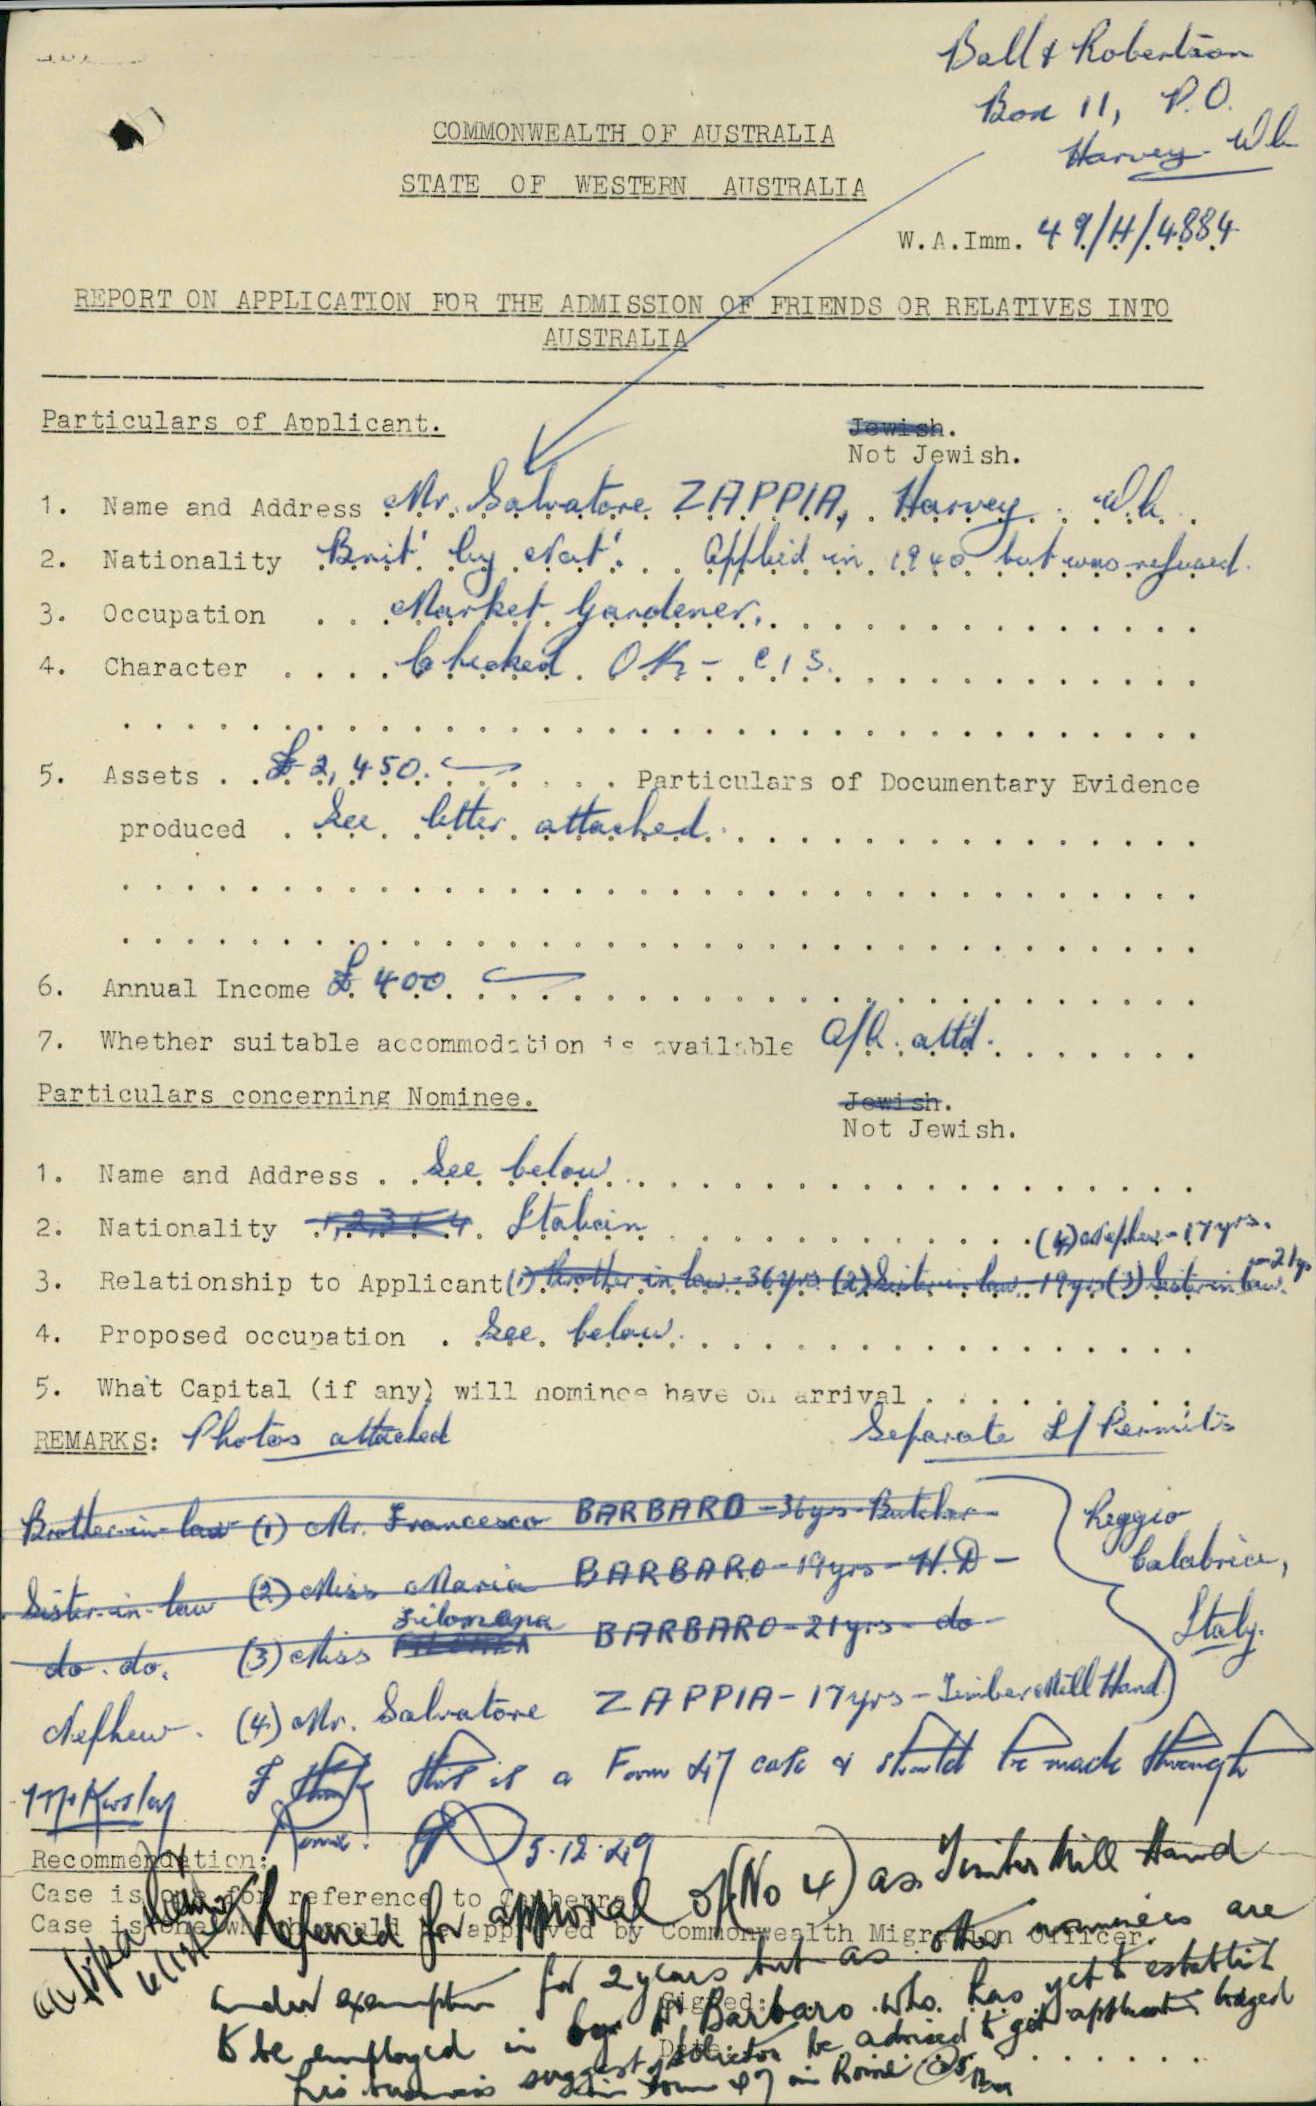 Ball & Robertson
Box 11, P.O.
Harvey W.A.
COMMONWEALTH OF AUSTRALIA
STATE OF WESTERN AUSTRALIA
W.A.Imm. 49/H/4884
REPORT ON APPLICATION FOR THE ADMISSION OF FRIENDS OR RELATIVES INTO
AUSTRALIA
Particulars of Applicant.
Jewish.
Not Jewish.
1. Name and Address Mr. Salvatore ZAPPIA, Harvey W.A.
2. Nationality Brit' by Nat'. Applied in 1940 but was refused.
3. Occupation Market Gardener.
4. Character Checked OK - C I S.
5. Assets £2,450. Particulars of Documentary Evidence
produced See letter attached.
6. Annual Income £400
7. Whether suitable accommodation is available A/R. att'd.
Particulars concerning Nominee.
Jewish.
Not Jewish.
1. Name and Address See below
2. Nationality 1,2,3 & 4. Italian
(4) Nephew - 17 yrs.
3. Relationship to Applicant (1) Brother in law - 36 yrs (2) Sister-in-law - 19 yrs (3) Sister in law - 21 yrs
4. Proposed occupation See below.
5. What Capital (if any) will nominee have on arrival
REMARKS: Photos attached Separate L/Permits
Brother-in-law (1) Mr. Francesco BARBARO - 36 yrs - Butcher - Reggio
Sister-in-law (2) Miss Maria BARBARO - 19 yrs - H.D - Calabria,
Filomena
do. do. (3) Miss BARBARO - 21 yrs - do - Italy.
Nephew. (4) Mr. Salvatore ZAPPIA - 17 yrs - Timber Mill Hand
I think this is a Form 47 case & should be made through
Rome. 5.12.49
Recommendation:
Case is one for reference to Canberra
Case is one which should be approved by Commonwealth Migration Officer.
Referred for approval of (No 4) as Timber Mill Hand
under exemption for 2 years but as other nominees are
Signed:
to be employed in by Mr Barbaro who has yet to establish
Date:
his business suggest solicitor be advised to get application lodged
in Form 47 in Rome